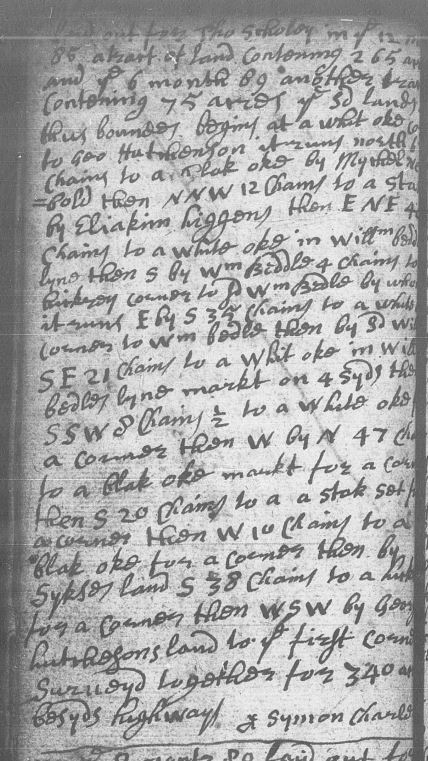 laid out for Tho Scholey in ye 12 m
85 a tract of land Contening 265 a
and ye 6 month 89 another tra
Contening 75 acres ye sd lands
thus bounded begins at a whit oke
to Geo Hutchenson it runs north
Chains to a blak oke by Mychel Ne
=bold then NNW 12 Chains to a Sta
by Eliakim higgens then E NE 4
Chains to a white oke in Willm bedl
lyne then S by Wm Beddle 4 Chains to
hickrey corner to sd Wm Bedle by who
it runs E by S 35 Chains to a whit
corner to Wm bedle then by sd Will
S E 21 Chains to a whit oke in Will
bedles lyne markt on 4 Syds the
SSW 8 Chains ½ to a white oke f
a corner then W by N 47 Cha
to a blak oke markt for a corn
then S 20 Chains to a a stak set f
a corner then W 10 Chains to a
blak oke for a corner then by
Sykses land S 38 Chains to a hik
for a corner then WSW by Geor
hutchesons land to ye first Corne
Surueyd together for 340 a
besyds highways
Symon Charle
month 89 laid out for